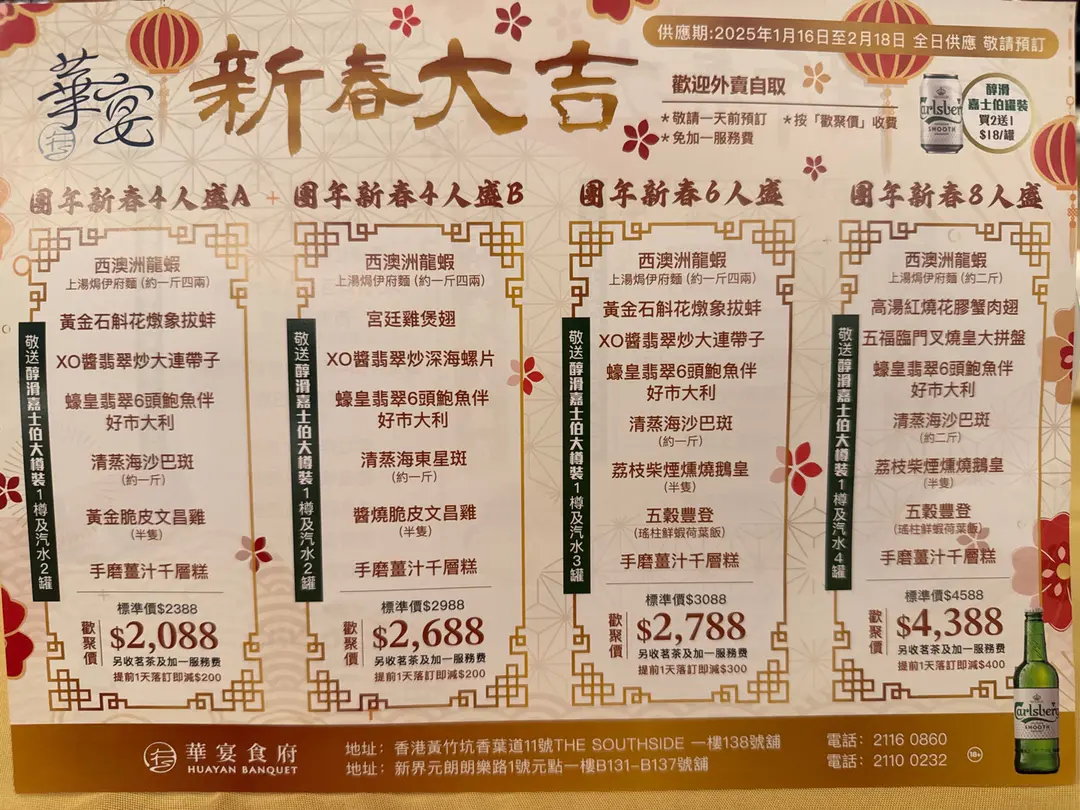 供應期:2025年1月16日至2月18日 全日供應 敬請預訂
華宴
新春大吉
歡迎外賣自取
*敬請一天前預訂 *按「歡聚價」收費
*免加一服務費
Carlsberg
SMOOTH
醇滑
嘉士伯罐裝
買2送1
$18/罐
團年新春4人盛A
西澳洲龍蝦
上湯焗伊府麵 (約一斤四兩)
黃金石斛花燉象拔蚌
XO醬翡翠炒大連帶子
蠔皇翡翠6頭鮑魚伴
好市大利
清蒸海沙巴斑
(約一斤)
黃金脆皮文昌雞
(半隻)
手磨薑汁千層糕
敬送醇滑嘉士伯大樽裝1樽及汽水2罐
標準價$2388
歡聚價
$2,088
另收茗茶及加一服務費
提前1天落訂即減$200
團年新春4人盛B
西澳洲龍蝦
上湯焗伊府麵 (約一斤四兩)
宮廷雞煲翅
XO醬翡翠炒深海螺片
蠔皇翡翠6頭鮑魚伴
好市大利
清蒸海東星斑
(約一斤)
醬燒脆皮文昌雞
(半隻)
手磨薑汁千層糕
敬送醇滑嘉士伯大樽裝1樽及汽水2罐
標準價$2988
歡聚價
$2,688
另收茗茶及加一服務費
提前1天落訂即減$200
團年新春6人盛
西澳洲龍蝦
上湯焗伊府麵 (約一斤四兩)
黃金石斛花燉象拔蚌
XO醬翡翠炒大連帶子
蠔皇翡翠6頭鮑魚伴
好市大利
清蒸海沙巴斑
(約一斤)
荔枝柴煙燻燒鵝皇
(半隻)
五穀豐登
(瑤柱鮮蝦荷葉飯)
手磨薑汁千層糕
敬送醇滑嘉士伯大樽裝1樽及汽水3罐
標準價$3088
歡聚價
$2,788
另收茗茶及加一服務費
提前1天落訂即減$300
團年新春8人盛
西澳洲龍蝦
上湯焗伊府麵 (約二斤)
高湯紅燒花膠蟹肉翅
五福臨門叉燒皇大拼盤
蠔皇翡翠6頭鮑魚伴
好市大利
清蒸海沙巴斑
(約二斤)
荔枝柴煙燻燒鵝皇
(半隻)
五穀豐登
(瑤柱鮮蝦荷葉飯)
手磨薑汁千層糕
敬送醇滑嘉士伯大樽裝1樽及汽水4罐
標準價$4588
歡聚價
$4,388
另收茗茶及加一服務費
提前1天落訂即減$400
Carlsberg
SMOOTH
華宴食府
HUAYAN BANQUET
地址: 香港黃竹坑香葉道11號THE SOUTHSIDE 一樓138號舖
地址: 新界元朗朗樂路1號元點一樓B131-B137號舖
電話: 2116 0860
電話: 2110 0232
18+